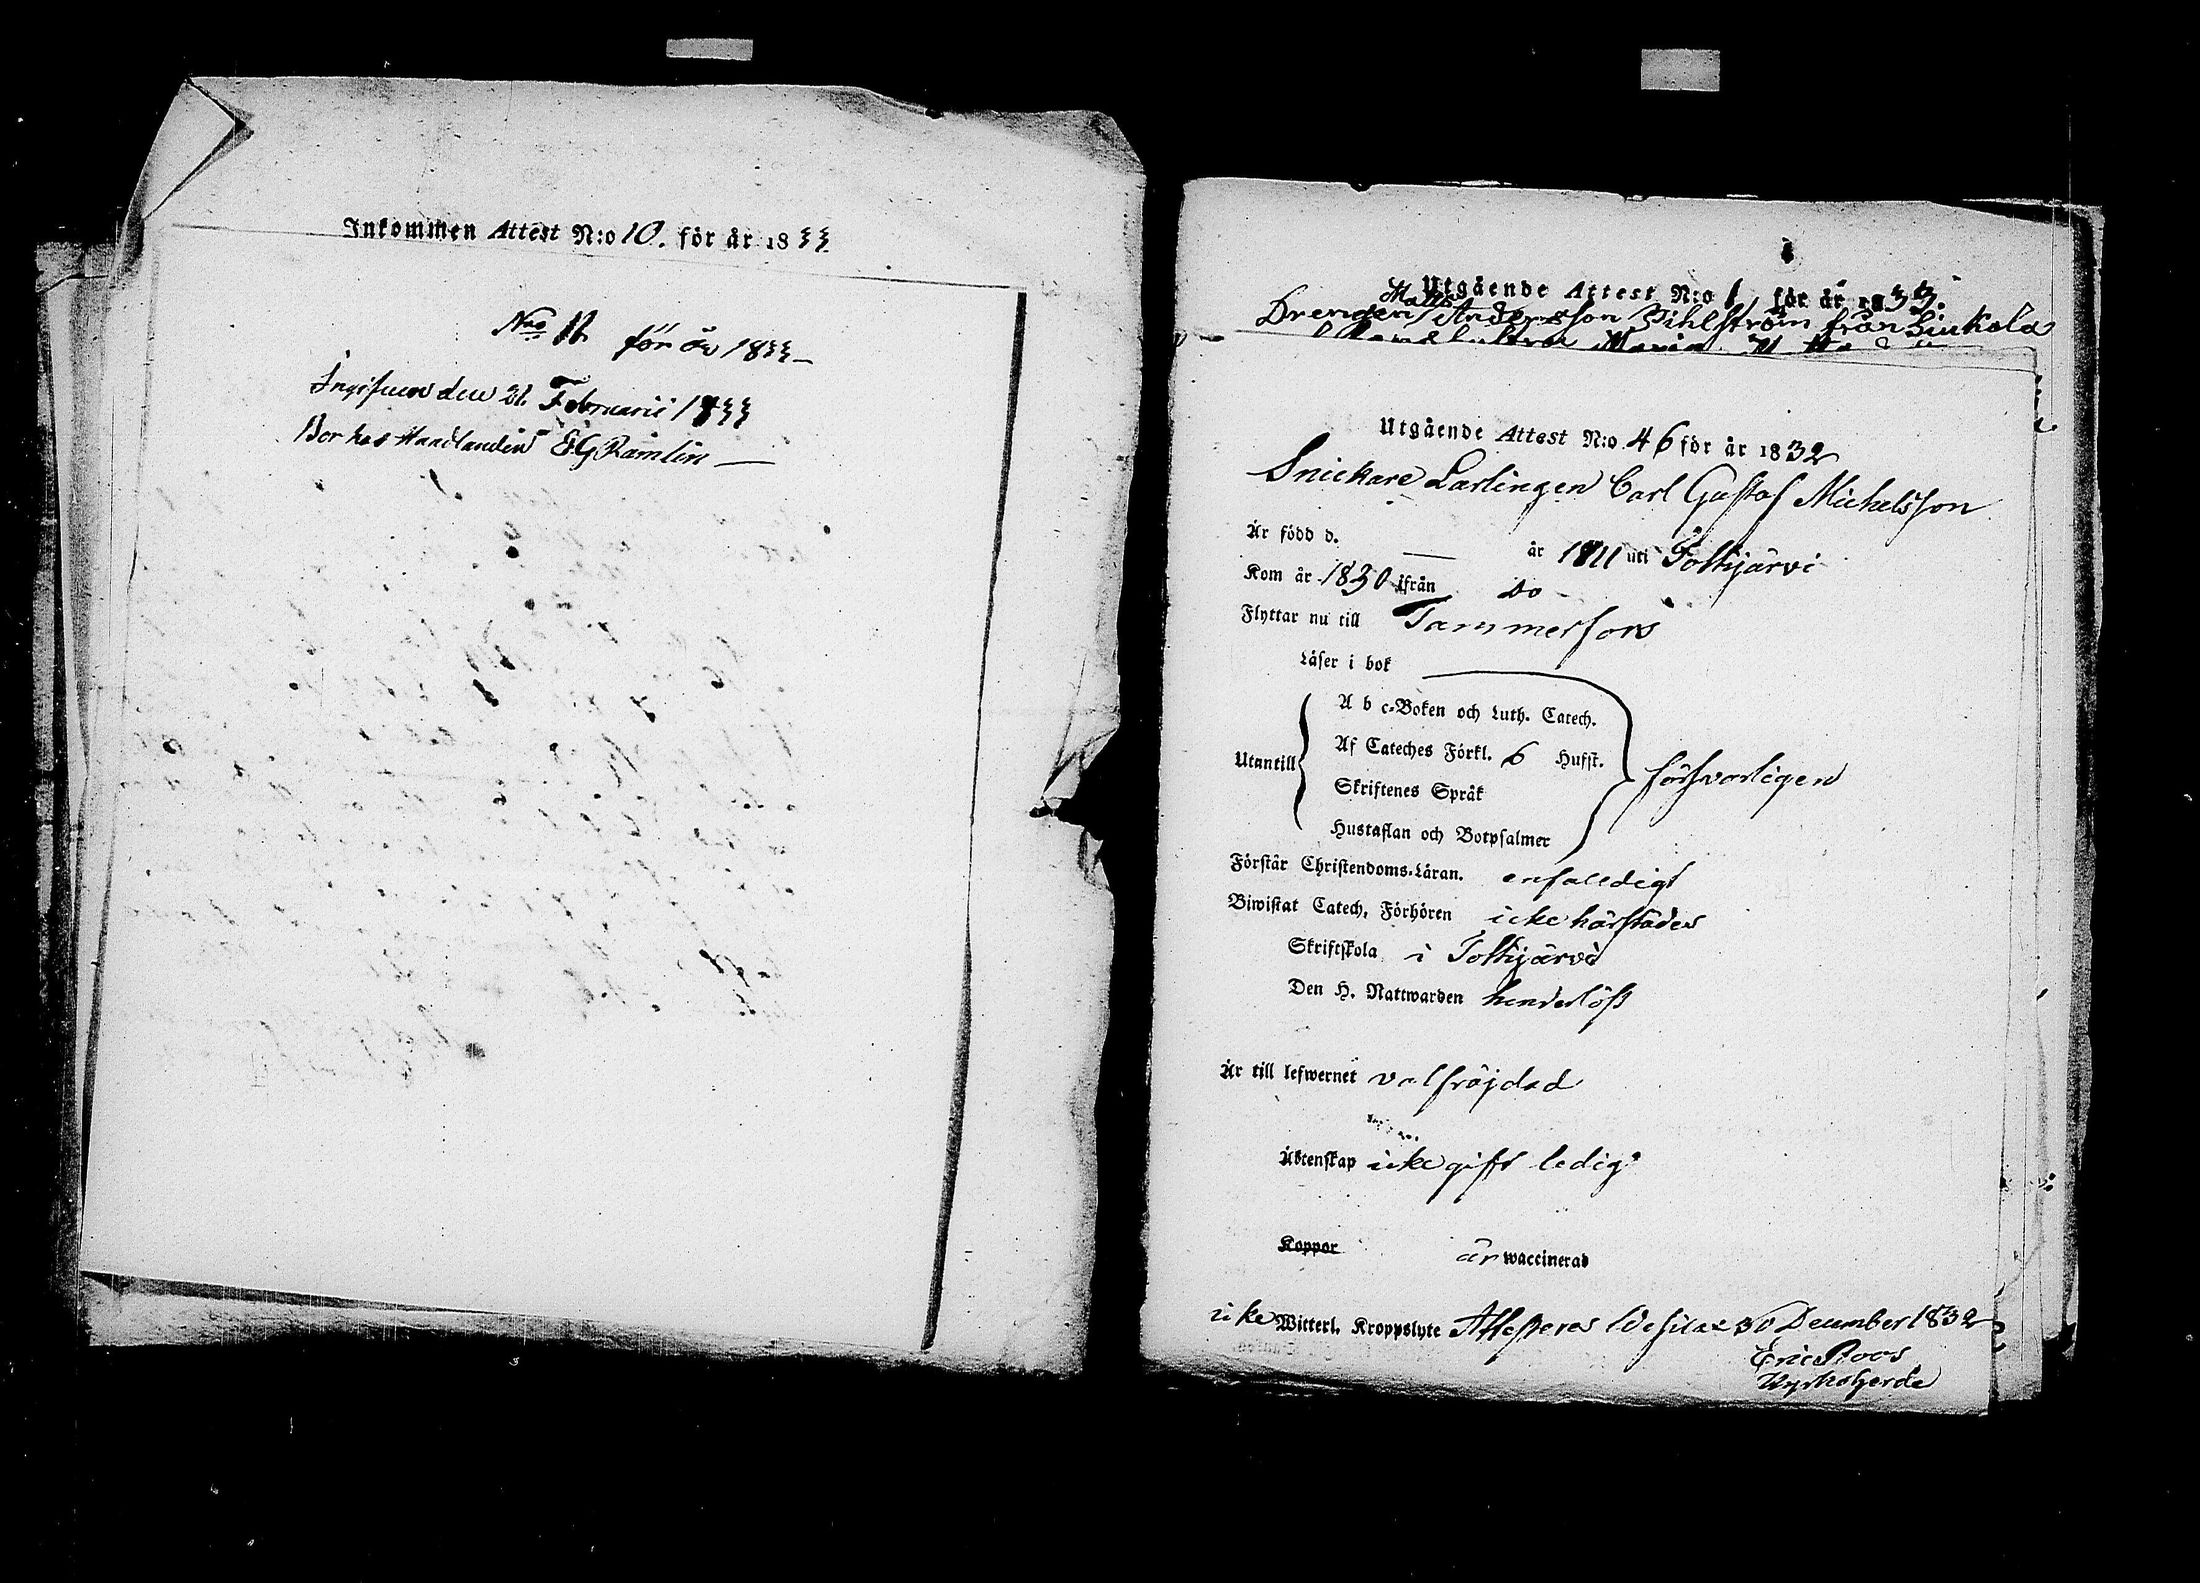 Inkommen Attest N:o 10. för år 1833
Nro 11. för år 1833 –
Ingifven den 21. Februarii 1833
Bor hos Handlanden E.G Ramlin –
Utgående Attest N:o 1 för år 1833.
Matts
Drengen Andersson Pihlström från Liukola
Maria
Utgående Attest N:o 46 för år 1832
Snickare Lärlingen Carl Gustaf Michelsson
Är född d. — år 1811 uti Tottijärvi
Kom år 1830 ifrån do
Flyttar nu till Tammerfors
Läser i bok
A b c-Boken och Luth. Catech.
Af Cateches Förkl. 6 Hufst.
Utantill försvarligen
Skriftenes Språk
Hustaflan och Botpsalmer
Förstår Christendoms-Läran. enfaldigt
Biwistat Catech. Förhören icke härstädes
Skriftskola i Tottijärvi
Den H. Nattwarden hinderlöst
Är till lefwernet välfräjdad
Äktenskap icke gift ledig
Koppor är waccinerad
icke Witterl. Kroppslyte Attesteras Vesilax 30 December 1832
Eric Roos
Kyrkoherde